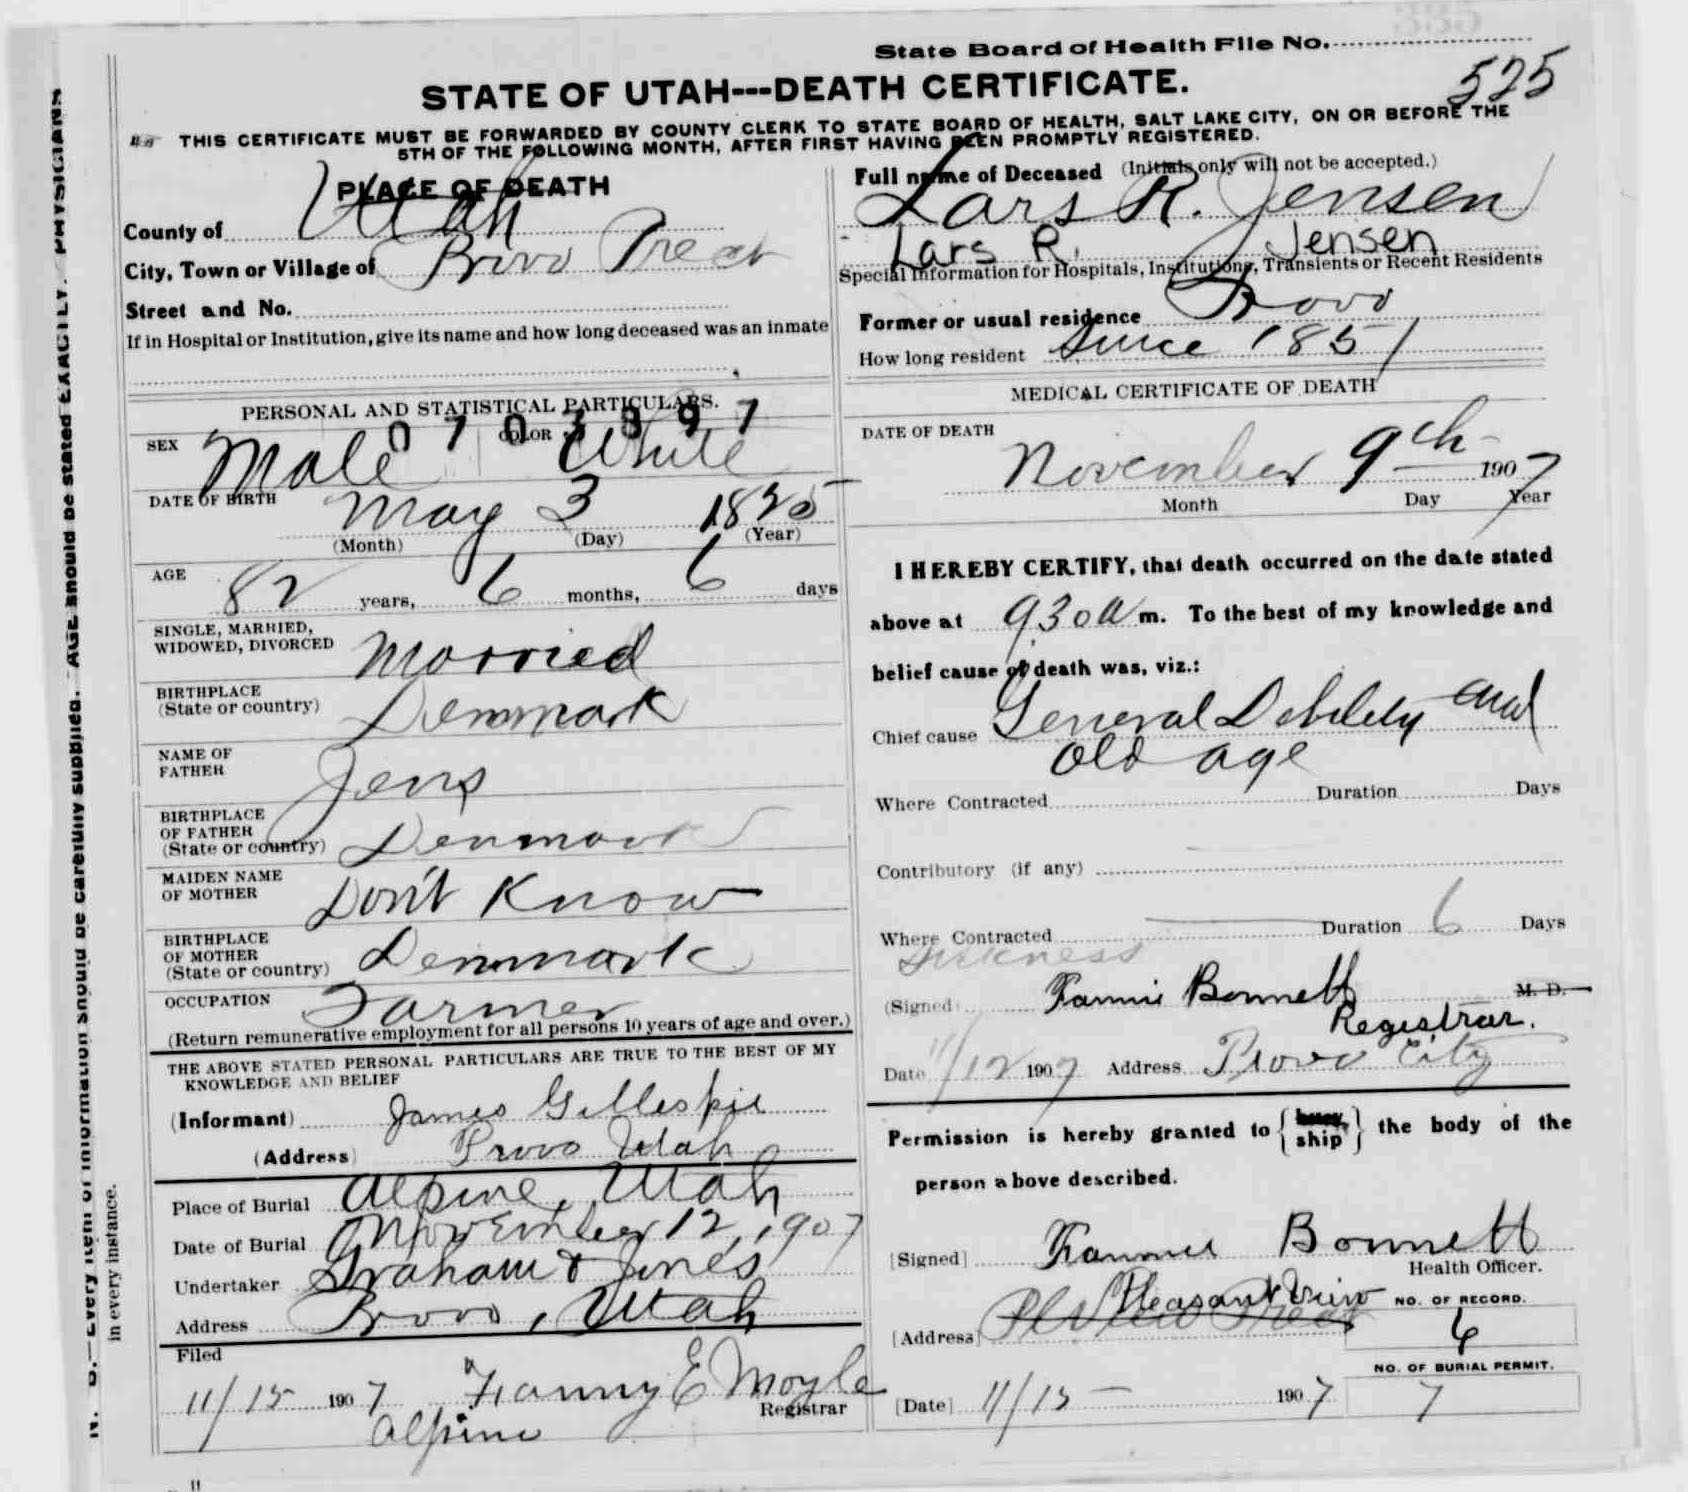 State Board of Health File No.
525
STATE OF UTAH---DEATH CERTIFICATE.
THIS CERTIFICATE MUST BE FORWARDED BY COUNTY CLERK TO STATE BOARD OF HEALTH, SALT LAKE CITY, ON OR BEFORE THE
5TH OF THE FOLLOWING MONTH, AFTER FIRST HAVING BEEN PROMPTLY REGISTERED.
PLACE OF DEATH
County of Utah
City, Town or Village of Provo Prect
Street and No.
If in Hospital or Institution, give its name and how long deceased was an inmate
PERSONAL AND STATISTICAL PARTICULARS.
0703897
SEX Male COLOR White
DATE OF BIRTH May 3 1825
(Month) (Day) (Year)
AGE 82 years, 6 months, 6 days
SINGLE, MARRIED,
WIDOWED, DIVORCED Married
BIRTHPLACE
(State or country) Denmark
NAME OF
FATHER Jens
BIRTHPLACE
OF FATHER
(State or country) Denmark
MAIDEN NAME
OF MOTHER Don't Know
BIRTHPLACE
OF MOTHER
(State or country) Denmark
OCCUPATION Farmer
(Return remunerative employment for all persons 10 years of age and over.)
THE ABOVE STATED PERSONAL PARTICULARS ARE TRUE TO THE BEST OF MY
KNOWLEDGE AND BELIEF
(Informant) James Gillespie
(Address) Provo Utah
Place of Burial Alpine, Utah
Date of Burial November 12, 1907
Undertaker Graham & Jones
Address Provo, Utah
Filed
11/15 1907 Fanny E Moyle
Registrar
Alpine
Full name of Deceased (Initials only will not be accepted.)
Lars R. Jensen
Lars R. Jensen
Special Information for Hospitals, Institutions, Transients or Recent Residents
Former or usual residence Provo
How long resident Since 1851
MEDICAL CERTIFICATE OF DEATH
DATE OF DEATH
November 9th 1907
Month Day Year
I HEREBY CERTIFY, that death occurred on the date stated
above at 930 a m. To the best of my knowledge and
belief cause of death was, viz.:
Chief cause General Debility and
old age
Where Contracted Duration Days
Contributory (if any)
Where Contracted Duration 6 Days
Sickness
(Signed) Fannie Bonnett M. D.
Registrar.
Date 11/12 1907 Address Provo City
Permission is hereby granted to { bury ship } the body of the
person above described.
[Signed] Fannie Bonnett
Health Officer.
Pleasant View
[Address]
NO. OF RECORD.
6
NO. OF BURIAL PERMIT.
7
[Date] 11/15 1907
N. B.—Every item of information should be carefully supplied. AGE should be stated EXACTLY. PHYSICIANS
in every instance.